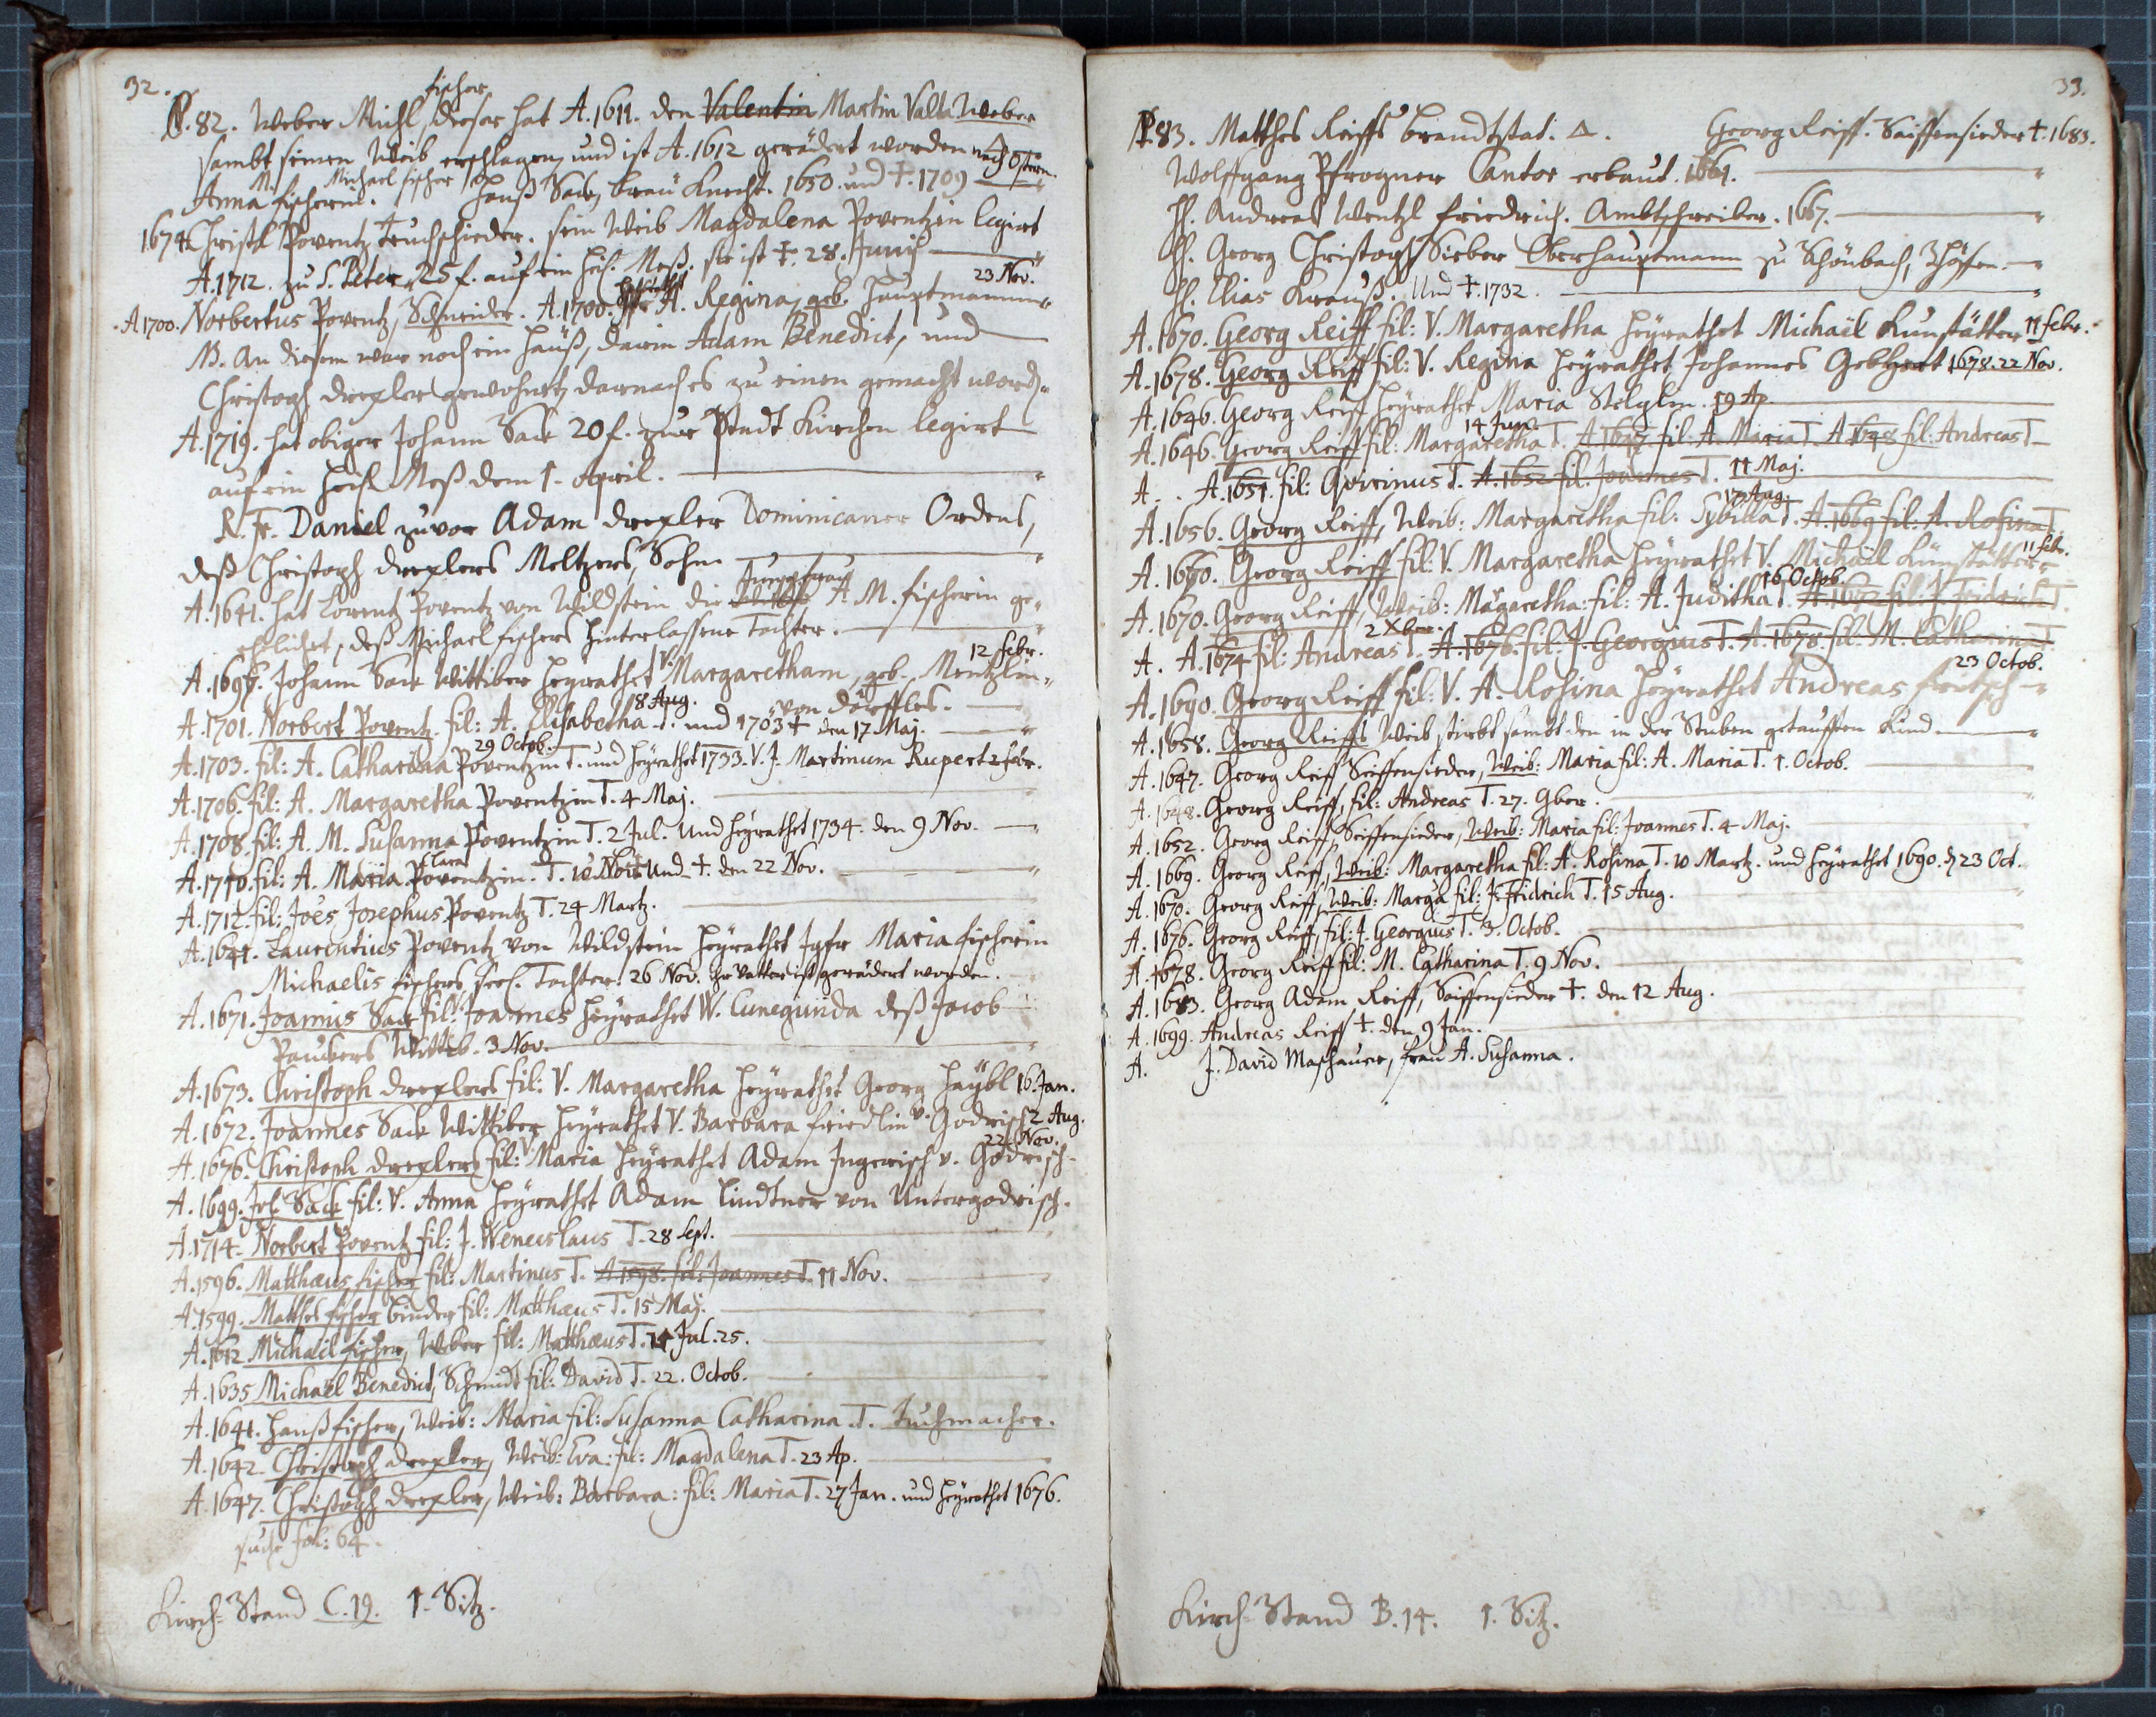 32.
N.82. Weber Michl fischer, dieser hat A.1611. den Valentin Martin Valta Weber
sambt seinen Weib erschlagen, und ist A.1612 gerädert worden nach Ostern.
Anna M. fischerin. Michael fischer Hanß Sack, breü Knecht. 1650. und †. 1709
1674. Christl Poventz Truchschieder. sein Weib Magdalena Poventzin legirt
A.1712. zu S. Peter 25 f. auf ein heil. Meß. sie ist †. 28. Junij
A.1700. Norbertus Poventz, Schneider. A.1700. heÿrathet A. Regina, geb. Hauptmannin 23 Nov.
NB. An diesem war noch ein Hauß, darin Adam Benedict, und
Christoph drexler gewohnet, darnach es zu einen gemacht word.
A.1719. hat obiger Johann Sack 20 f. zur Stadt Kirchen legirt
auf ein heil. Meß dem 1. April.
R. Fr. Daniel zuvor Adam drexler Dominicaner Ordens,
deß Christoph drexlers Meltzers, Sohn
A.1641. hat Lorentz Poventz von Wildstein die Jungfrau A. M. fischerin ge-
ehlichet, deß Michael fischers hinterlassene Tochter.
A.1695. Johann Sack Wittiber heÿrathet V. Margaretham, geb. Mentzlin 12 febr.
von Dörffles.
A.1701. Norbert Poventz. fil: A. Elisabetha T. 8 Aug. und 1703 † den 17 Maj.
A.1703. fil: A. Catharina Poventzin T. 29 Octob. und heÿrathet 1733. V. J. Martinum Rupert 2 febr.
A.1706. fil: A. Margaretha Poventzin T. 4 Maj.
A.1708. fil: A. M. Susanna Poventzin T. 2 Jul. und heÿrathet 1734. den 9 Nov.
A.1710. fil: A. Maria Clara Poventzin. T. 10 Nov. und †. den 22 Nov.
A.1712. fil: Joês Josephus Poventz T. 24 Martz.
A.1641. Laurentius Poventz von Wildstein heÿrathet Jgfr Maria fischerin
Michaelis fischers seel. Tochter. 26 Nov. ihr Vatter ist gerädert worden.
A.1671. Joannis Sack fil: Joannes heÿrathet W. Cunegunda deß Jacob
Paubers Wittib. 3 Nov.
A.1673. Christoph drexlers fil: V. Margaretha heÿrathet Georg Haÿbl 16. Jan.
A.1672. Joannes Sack Wittiber heÿrathet V. Barbara friedlin v. Godrisch 2 Aug.
A.1676. Christoph drexlers fil: V. Maria heÿrathet Adam Ingerisch v. Godrisch 22 Nov.
A.1699. Joh. Sack fil: V. Anna heÿrathet Adam Lindtner von Untergodrisch.
A.1714. Norbert Poventz fil: J. Wenceslaus T. 28 Sept.
A.1596. Matthaeus fischer fil: Martinus T. A.1598. fil: Joannes T. 11 Nov.
A.1599. Matthes fischer binder fil: Matthaeus T. 15 Maj.
A.1612 Michael fischer, Weber fil: Matthaeus T. 14 Jul. 25.
A.1635 Michael Benedict, Schmidt fil: David T. 22. Octob.
A.1641. Hanß fischer, Weib: Maria fil: Susanna Catharina T. Tuchmacher.
A.1642. Christoph drexler, Weib: Eva: fil: Magdalena T. 23 Ap.
A.1647. Christoph drexler, Weib: Barbara: fil: Maria T. 27 Jan. und heÿrathet 1676.
suche fol: 64.
Kirch-Stand C.19. 1. Sitz.
33.
N.83. Matthes Reiffs brandtstat. Δ. Georg Reiff. Saiffensieder †. 1683.
Wolffgang Pfrogner Cantor erbaut. 1661.
H. Andreas Wentzl friedrich. Ambtschreiber. 1667.
H. Georg Christoph Sieber Oberhauptmann zu Schönbach,
H. Elias Krauß. Und †. 1732.
A.1670. Georg Reiff, fil: V. Margaretha heÿrathet Michaël Kunstätter 11 febr.
A.1678. Georg Reiff fil: V. Regina heÿrathet Johannes Gebhart 1678. 22 Nov.
A.1646. Georg Reiff heÿrathet Maria Stelzlin. 19 Ap
A.1646. Georg Reiff fil: Margaretha T. 14 Jun. A.1647. fil: A. Maria T. A.1648 fil: Andreas T.
A. . A.1651. fil: Qvirinus T. A.1652 fil. Joannes T. 11 Maj.
A.1656. Georg Reiff, Weib: Margaretha fil: Sybilla T. 17 Aug. A.1669 fil: A. Rosina T.
A.1670. Georg Reiff fil: V. Margaretha heÿrathet V. Michaël Künstätter 11 febr.
A.1670. Georg Reiff, Weib: Magaretha: fil: A. Juditha T. 16 Octob. A.1672 fil: J. Fridrich T.
A. A.1674 fil: Andreas T. 2 Xber. A.1676. fil: J. Georgius T. A.1678. fil: M. Catharina T.
A.1690. Georg Reiff fil: V. A. Rosina heÿrathet Andreas fritsch 23 Octob.
A.1658. Georg Reiffs Weib stirbt sambt den in der Stuben getaufften Kind.
A.1647. Georg Reiff Seiffensieder, Weib: Maria fil: A. Maria T. 1. Octob.
A.1648. Georg Reiff, fil: Andreas T. 27. 9ber.
A.1652. Georg Reiff, Seiffensieder, Weib: Maria fil: Joannes T. 4 Maj.
A.1669. Georg Reiff, Weib: Margaretha fil: A. Rosina T. 10 Martz. und heÿrathet 1690. d. 23 Oct.
A.1670. Georg Reiff, Weib: Marga fil: J. Fridrich T. 15 Aug.
A.1676. Georg Reiff, fil: J. Georgius T. 3. Octob.
A.1678. Georg Reiff fil: M. Catharina T. 9 Nov.
A.1683. Georg Adam Reiff, Saiffensieder †. den 12 Aug.
A.1699. Andreas Reiff †. den 9 Jan.
A. J. David Maschauer, frau A. Susanna.
Kirch-Stand B.14. 1. Sitz.